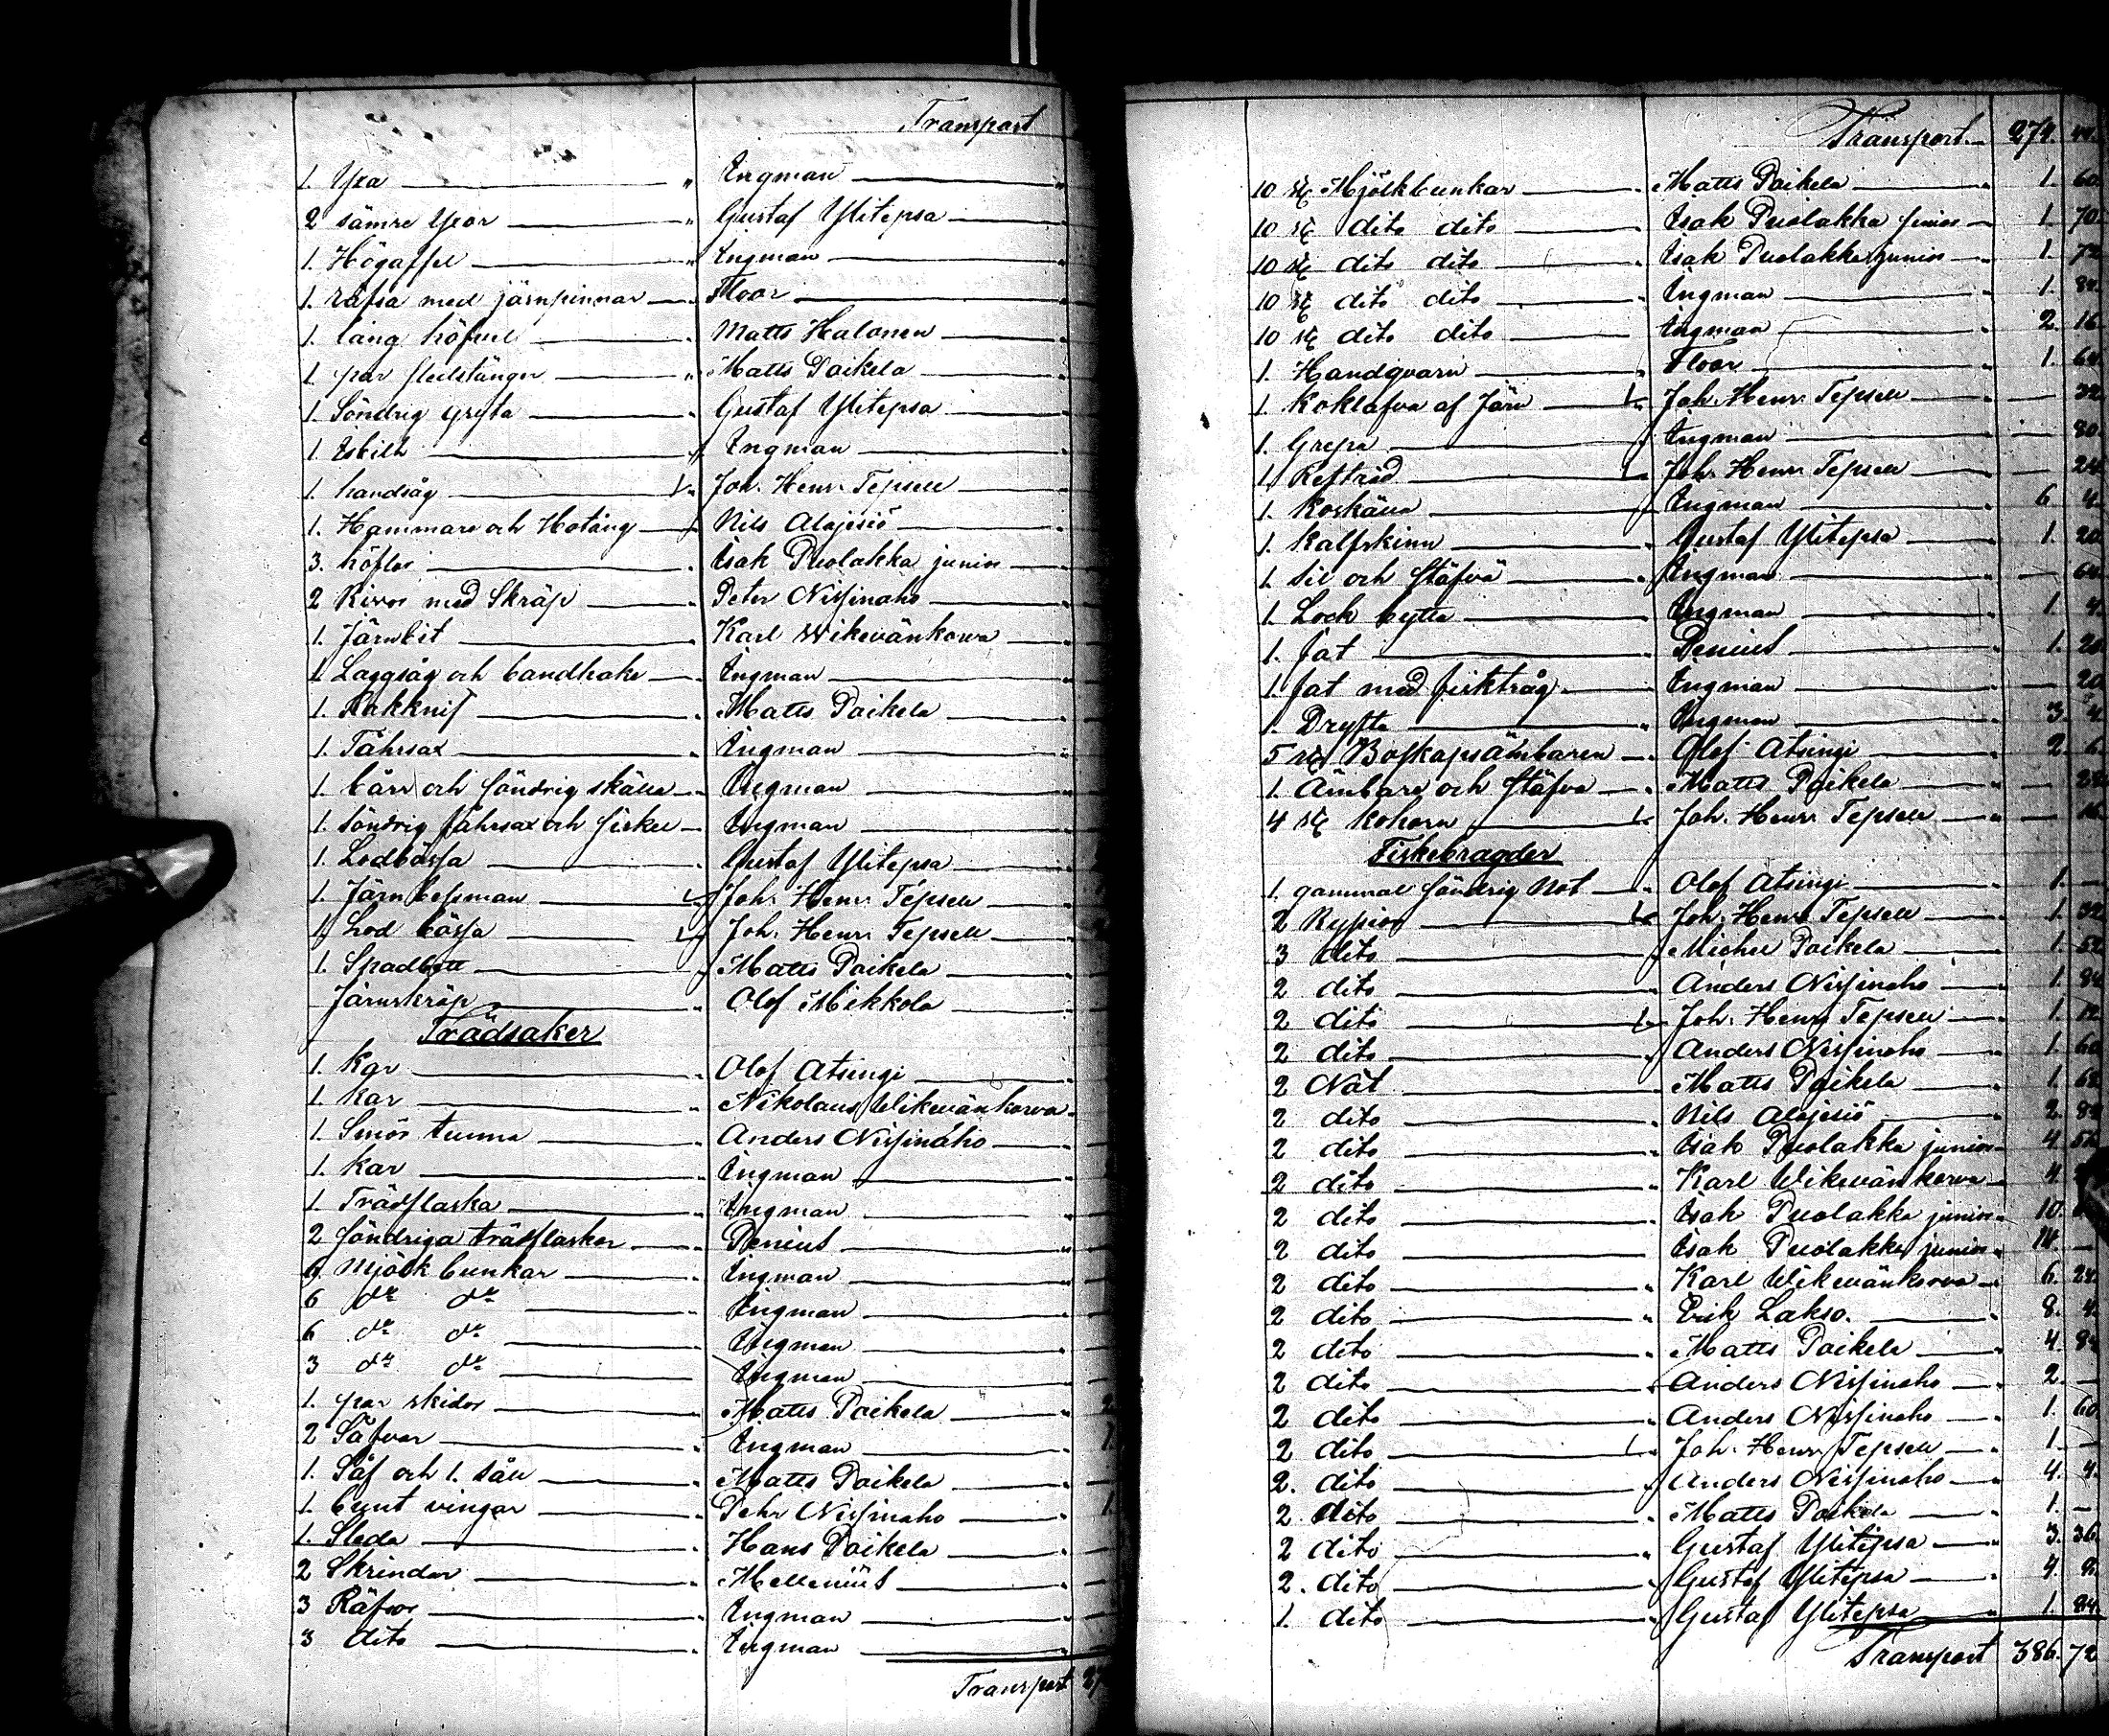 Transport
1. Yxa " Ingman
2 sämre Yxor " Gustaf Ylitepsa
1. Högaffel " Ingman
1. räfsa med järnpinnar Floor
1. lång höfvel Matts Halonen
1. par fleilstänger " Matts Paikela
1. Söndrig gryta Gustaf Ylitepsa
1. Isbill Ingman
1. handsåg Joh. Henr. Tepsell
1. Hammare och Hotång Nils Alajesiö
3. höflar Isak Puolakka junior
2 Kivor med Skräp Peter Nissinaho
1. Järnbit Karl Wikevänkorva
1. Laggsåg och bandhake Ingman
1. Rakknif Matts Paikela
1. Fåhrsax Ingman
1. bårr och söndrig skälla Ingman
1. söndrig fåhrsax och Ingman
1. Lodbössa Gustaf Ylitepsa
1. Järn besman Joh. Henr. Tepsell
1. Lod bössa Joh. Henr. Tepsell
1. Spadbett Matts Paikela
Järnskräp Olof Mikkola
Trädsaker
1. Kar Olof Atsingi
1. Kar Nikolaus Wikevänkorva
1. Smör tunna Anders Nissinaho
1. Kar Ingman
1. Trädflaska Ingman
2 söndriga trädflaskor Penius
6 Mjölk bunkar Ingman
6 do do Ingman
6 do do Ingman
3 do do Ingman
1. par skidor Matts Paikela
2 Säfvar Ingman
1. Såf och 1. såll Matts Paikela
1. bunt vingar Pehr Nissinaho
1. Sleda Hans Paikela
2 Skrindor Mellenius
3 Räfsor Ingman
3 dito Ingman
Transport 27
Transport 274. 44.
10 st Mjölkbunkar Matts Paikela 1. 60
10 st dito dito Isak Puolakka junior 1. 70
10 st dito dito Isak Puolakka junior 1. 72
10 st dito dito Ingman 1. 84
10 st dito dito Ingman 2. 16
1. Handqvarn Floor 1. 64
1. Koklafva af Järn Joh. Henr. Tepsell 32
1. Grepa Ingman 80
1. Reftråd Joh. Henr. Tepsell 24
1. Koskälla Ingman 6 4
1. Kalfskinn Gustaf Ylitepsa 1. 20
1. Sil och Stäfva Ingman 64
1. Lock bytta Ingman 1. 4
1. fat Penius 1. 20
1. fat med fisktråg Ingman 20
1. Dryfta Ingman 3. 4
5 st Boskapsämbaren Olof Atsingi 2. 6
1. Ämbare och Stäfva Matts Paikela 28
4 st Kohorn Joh. Henr. Tepsell 16
Fiskebragder
1. gammal söndrig Not Olof Atsingi 1. —
2 Rysior Joh. Henr. Tepsell 1. 32
3 dito Michel Paikela 1. 52
2 dito Anders Nissinaho 1. 84
2 dito Joh. Henr. Tepsell 1. 12
2 dito Anders Nissinaho 1. 60
2 Nät Matts Paikela 1. 62
2 dito Nils Alajesiö 2. 82
2 dito Isak Puolakka junior 4. 52
2 dito Karl Wikevänkorva 4.
2 dito Isak Puolakka junior 10.
2 dito Isak Puolakka junior 14. —
2 dito Karl Wikevänkorva 6. 24
2 dito Erik Lakso. 8. 4
2 dito Matts Paikela 4. 84
2 dito Anders Nissinaho 2. —
2 dito Anders Nissinaho 1. 60
2 dito Joh. Henr. Tepsell 1. —
2. dito Anders Nissinaho 4. 4
2 dito Matts Paikela 1. —
2 dito Gustaf Ylitepsa 3. 36
2. dito Gustaf Ylitepsa 4 8.
1. dito Gustaf Ylitepsa 1. 24.
Transport 386. 72